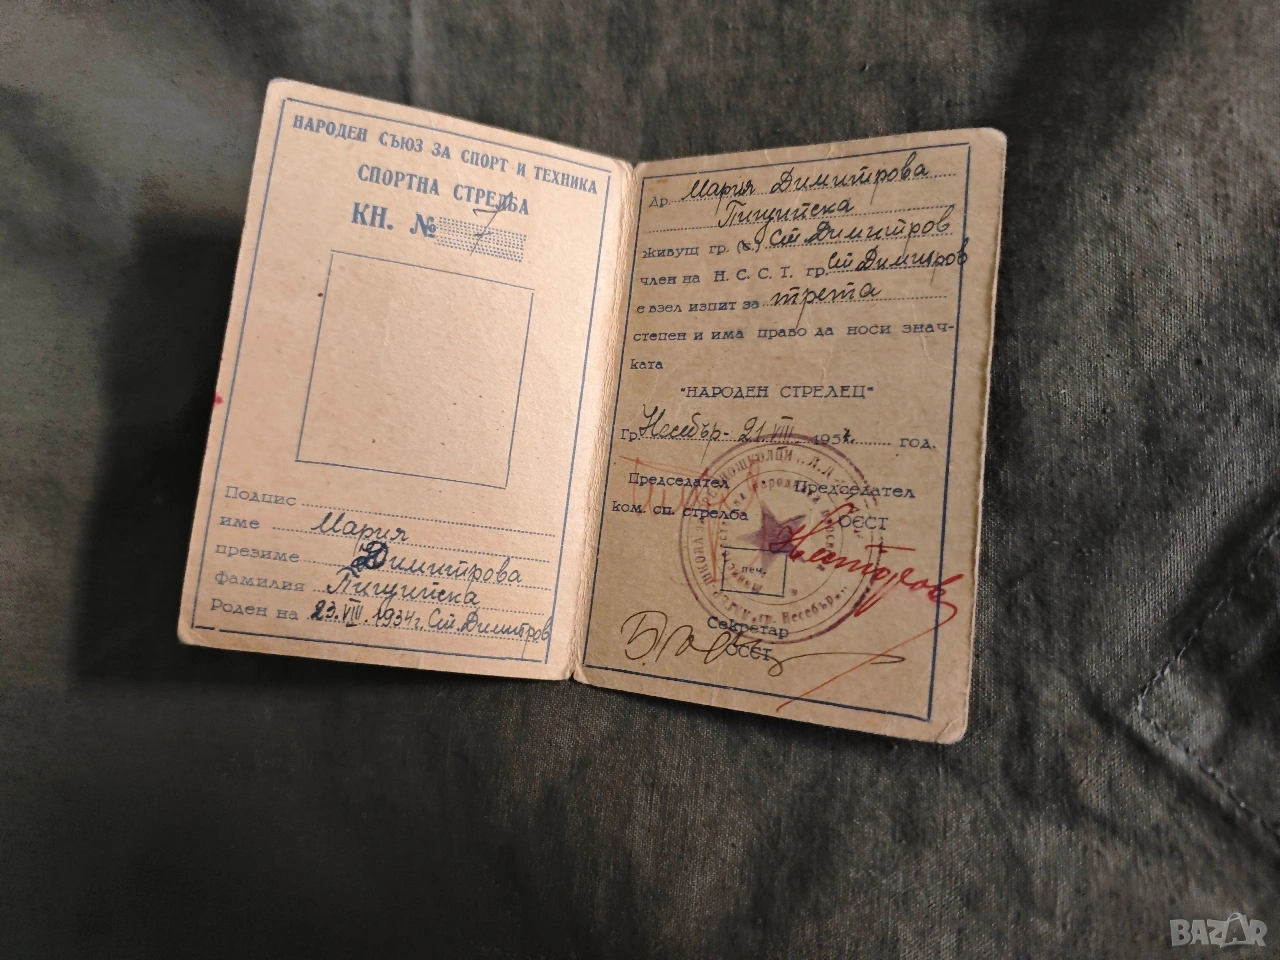 НАРОДЕН СЪЮЗ ЗА СПОРТ И ТЕХНИКА
СПОРТНА СТРЕЛБА
КН. № 7
Подпис
име Мария
презиме Димитрова
фамилия Пищийска
Роден на 23.VIII.1934г. Ст Димитров
Др. Мария Димитрова
Пищийска
живущ гр. (с.) Ст Димитров
член на Н. С. С. Т. гр. Ст Димитров
е взел изпит за трета
степен и има право да носи знач-
ката
"НАРОДЕН СТРЕЛЕЦ"
Гр. Несебър - 21.VIII. 1957 год.
Председател Председател
ком. сп. стрелба ОССТ
печ.
гр. Несебър
Секретар
ОССТ
BAZAR